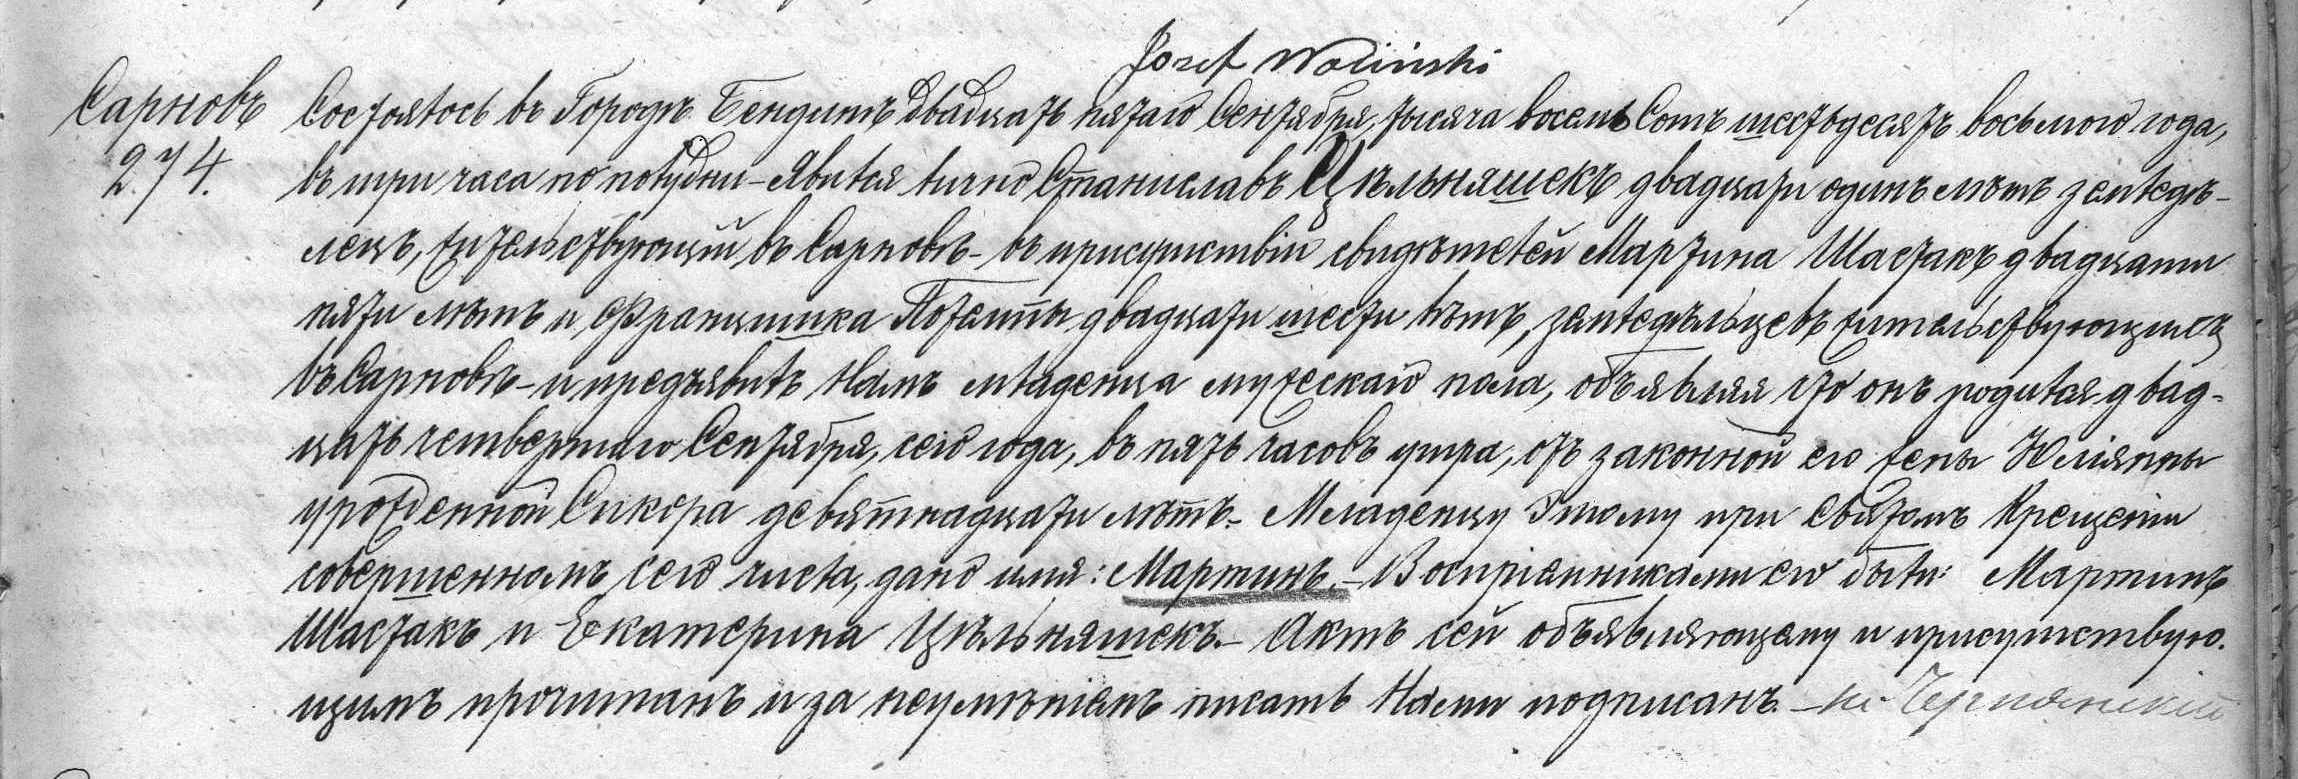 Józef Woliński
Сарновъ Состоялось въ Городѣ Бендинѣ двадцать пятаго Сентября, тысяча восемь Сотъ шестьдесятъ восьмого года,
274. въ три часа по полудни – Явился лично Станиславъ Цѣльняшекъ двадцати одинъ лѣтъ земледѣ-
лецъ, жительствующій въ Сарновѣ – въ присутствіи свидѣтелей Мартина Шастакъ двадцати
пяти лѣтъ и Францишка двадцати шести лѣтъ, земледѣльцевъ жительствующихъ
въ Сарновѣ – и предъявилъ Намъ младенца мужескаго пола, объявляя что онъ родился двад-
цать четвертаго Сентября, сего года, въ пять часовъ утра, отъ законной его жены Юліянны
урожденной Сикора девятнадцати лѣтъ. – Младенцу этому при Святомъ Крещеніи
совершенномъ сего числа, дано имя: Мартинъ. – Воспріемниками его были: Мартинъ
Шастакъ и Екатерина Цѣльняшекъ. – Актъ сей объявляющему и присутствую-
щимъ прочитанъ и за неумѣніемъ писать Нами подписанъ. –